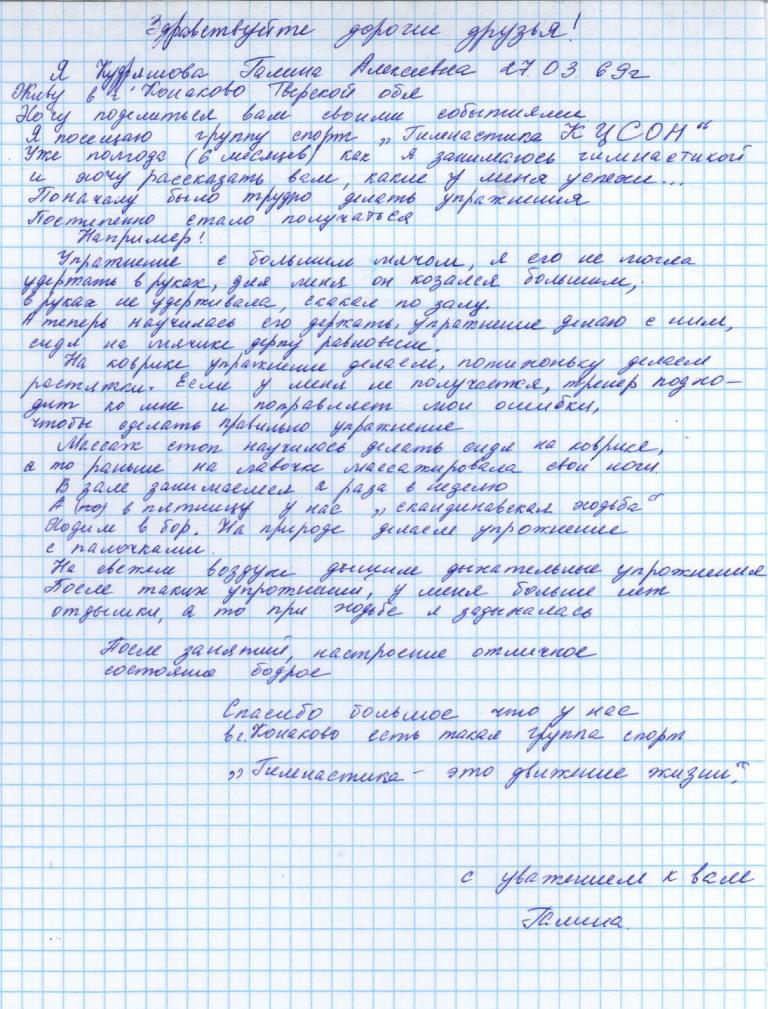 Здравствуйте дорогие друзья!
Я Кудряшова Галина Алексеевна 27.03 69г
Живу в г. Конаково Тверской обл
Хочу поделиться вам своими событиями
Я посещаю группу спорт „Гимнастика КЦСОН“
Уже полгода (6 месяцев) как я занимаюсь гимнастикой
и хочу рассказать вам, какие у меня успехи...
Поначалу было трудно делать упражнения
Постепенно стало получаться
Например!
Упражнение с большим мячом, я его не могла
удержать в руках, для меня он козался большим,
в руках не удерживала, скакал по залу.
А теперь научилась его держать, упражнение делаю с ним,
сидя на мячике держу равновесие.
На коврике упражнение делаем, потихоньку делаем
растяжки. Если у меня не получается, тренер подхо-
дит ко мне и поправляет мои ошибки,
чтобы сделать правильно упражнение
Массаж стоп научилась делать сидя на коврике,
а то раньше на лавочке массажировала свои ноги
В зале занимаемся 2 раза в неделю
А (по) в пятницу у нас „скандинавская ходьба“
Ходим в бор. На природе делаем упрожнение
с палочками.
На свежем воздухе дышим дыхательные упрожнения
После таких упротнений, у меня больше нет
отдышки, а то при ходьбе я задыхалась
После занятий, настроение отличное
состояние бодрое
Спасибо большое что у нас
в г. Конаково есть такая группа спорт
„Гимнастика – это движение жизни“
с уважением к вам
Галина.